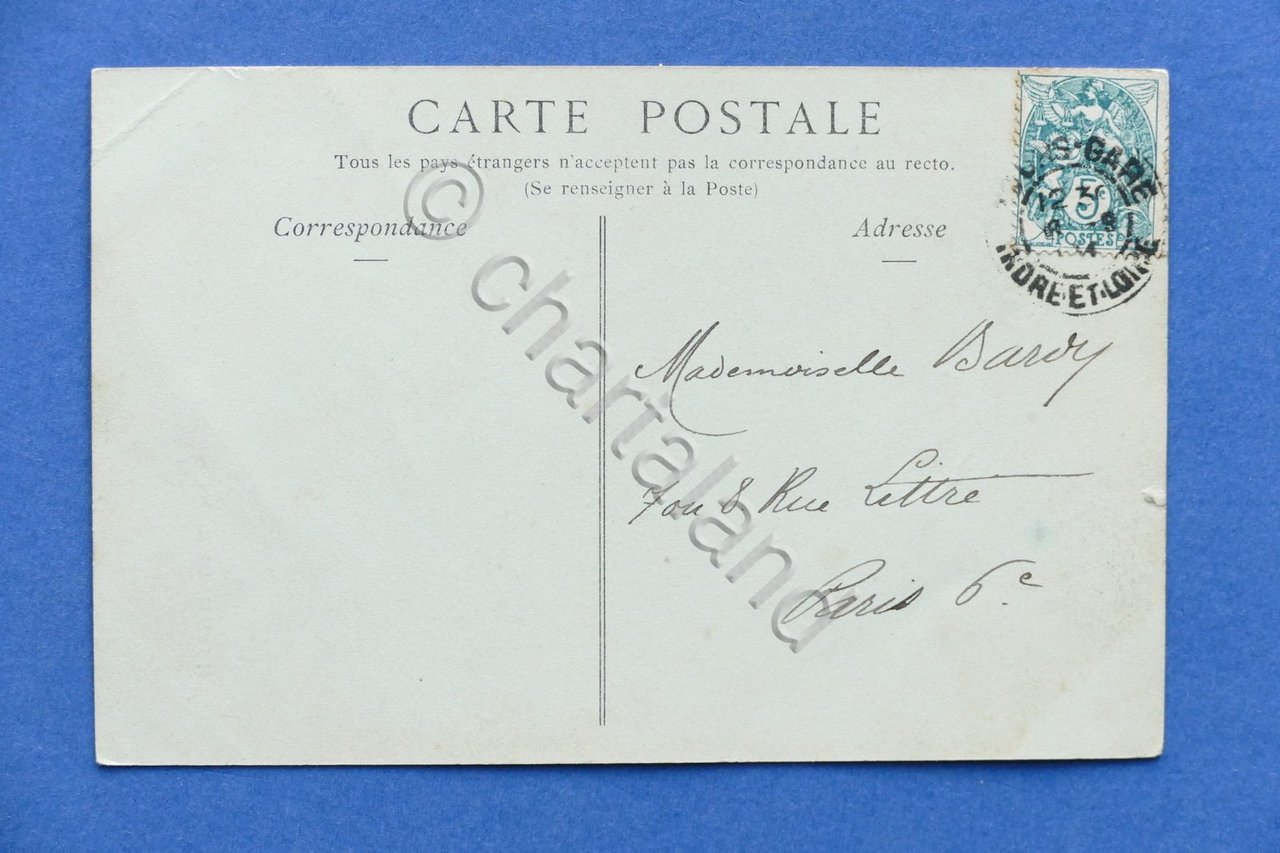 CARTE POSTALE
Tous les pays étrangers n'acceptent pas la correspondance au recto.
(Se renseigner à la Poste)
Correspondance
Adresse
5c
POSTES
GARE
12 30
INDRE-ET-LOIRE
Mademoiselle Bardy
8 Rue Littre
Paris 6e
© chartaland